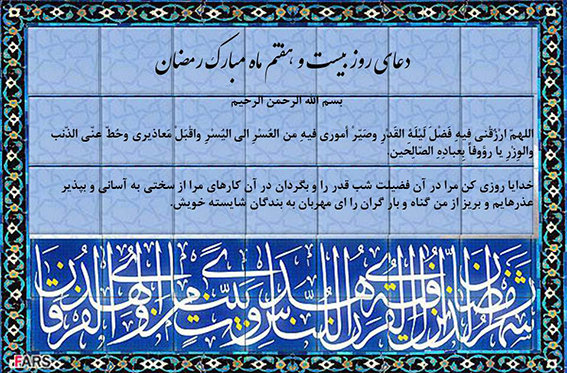 دعای روز بیست و هفتم ماه مبارک رمضان
بسم الله الرحمن الرحیم
اللهمّ ارْزُقْنی فیهِ فَضْلَ لَیْلَةِ القَدْرِ وصَیّرْ أموری فیهِ من العُسْرِ الی الیُسْرِ واقْبَلْ مَعاذیری وحُطّ عنّی الذّنب
والوِزْرِ یا رؤوفاً بِعبادِهِ الصّالحین.
خدایا روزی کن مرا در آن فضیلت شب قدر را و بگردان در آن کارهای مرا از سختی به آسانی و بپذیر
عذرهایم و بریز از من گناه و بار گران را ای مهربان به بندگان شایسته خویش.
شهر رمضان الذی انزل فیه القرآن هدی للناس و بینات من الهدی و الفرقان
FARS